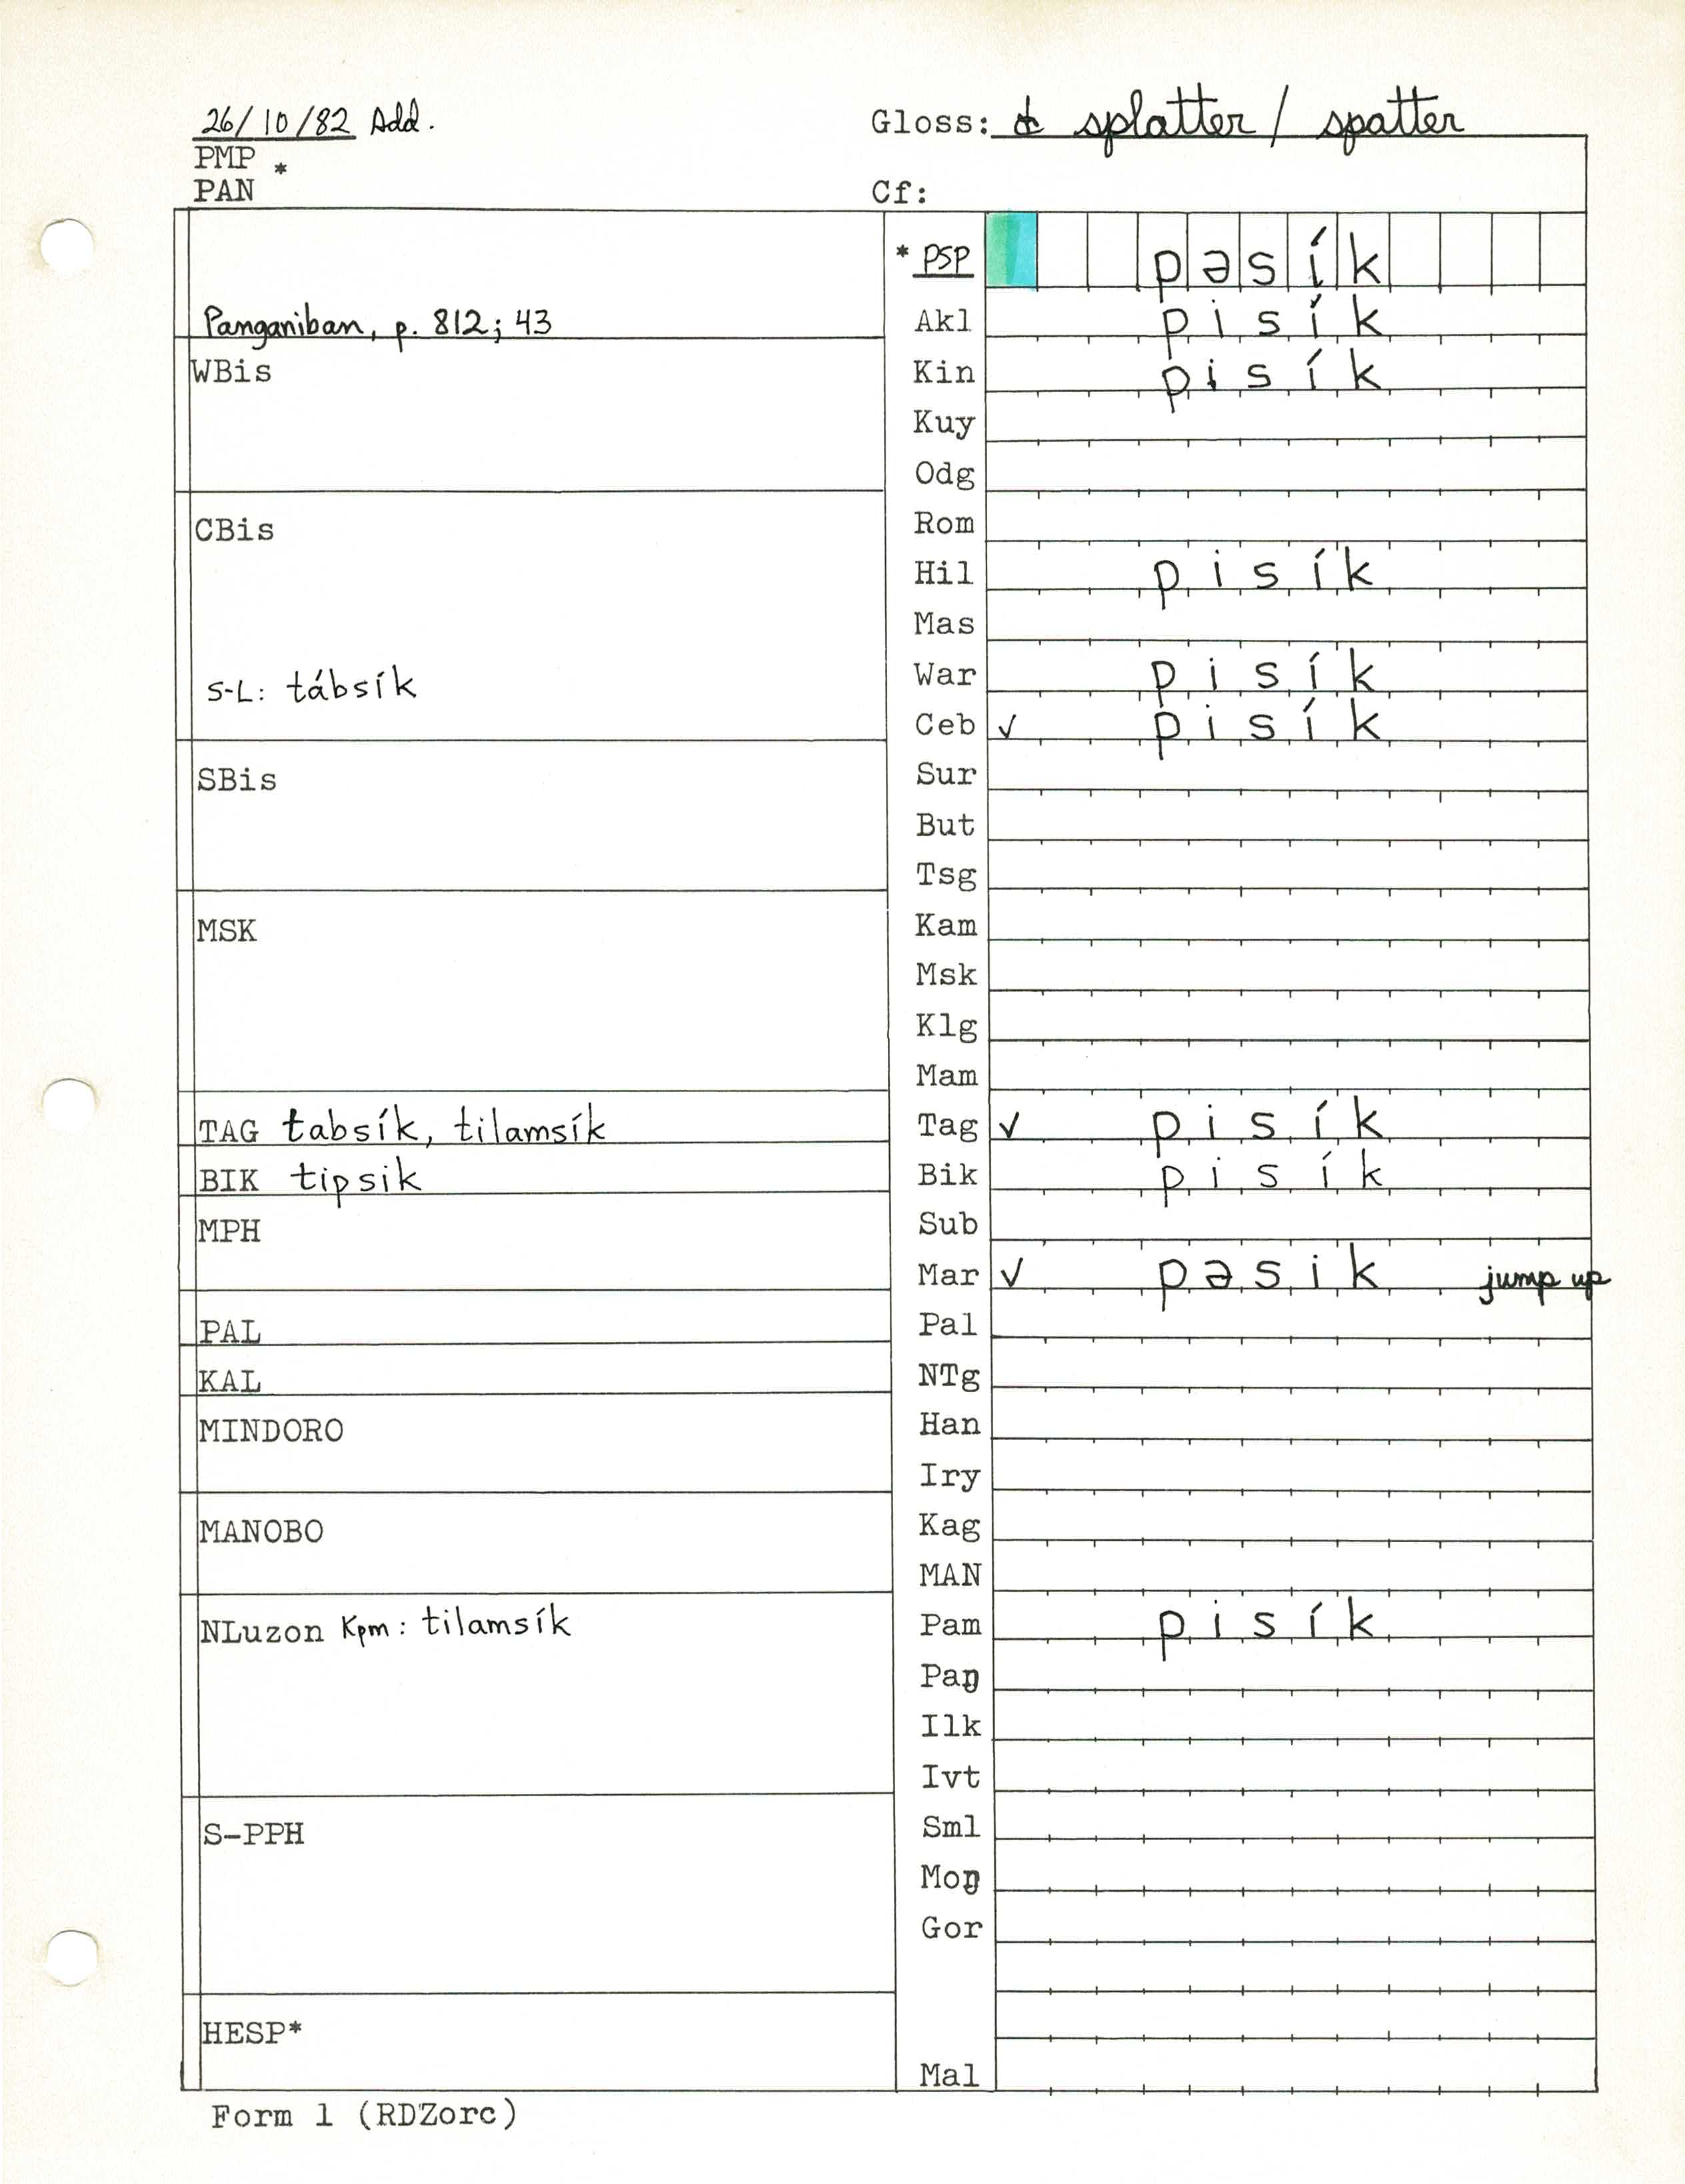 26/10/82 Add.
Gloss: splatter / spatter
PMP *
PAN
Cf:
* PSP pəsík
Panganiban, p. 812; 43
Akl pisík
WBis
Kin pisík
Kuy
Odg
CBis
Rom
Hil pisík
Mas
S-L: tábsík
War pisík
Ceb ✓ pisík
SBis
Sur
But
Tsg
MSK
Kam
Msk
Klg
Mam
TAG tabsík, tilamsík
Tag ✓ pisík
BIK tipsik
Bik pisík
MPH
Sub
Mar ✓ pəsik jump up
PAL
Pal
KAL
NTg
MINDORO
Han
Iry
MANOBO
Kag
MAN
NLuzon Kpm: tilamsík
Pam pisík
Paŋ
Ilk
Ivt
S-PPH
Sml
Moŋ
Gor
HESP*
Mal
Form 1 (RDZorc)